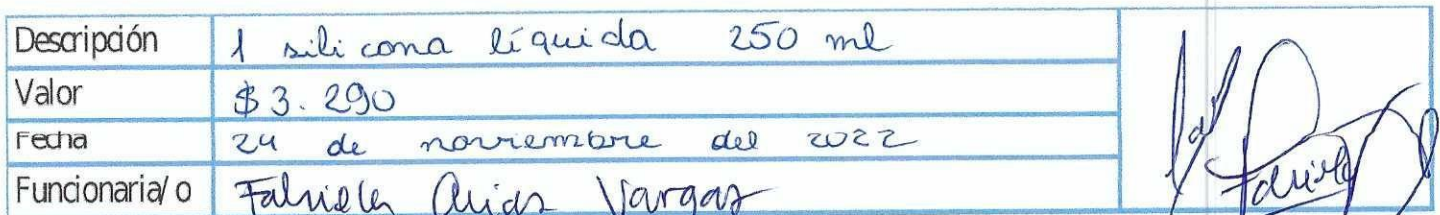 Descripción 1 silicona líquida 250 ml
Valor $3.290
Fecha 24 de noviembre del 2022
Funcionaria/o Fabiola Arias Vargas